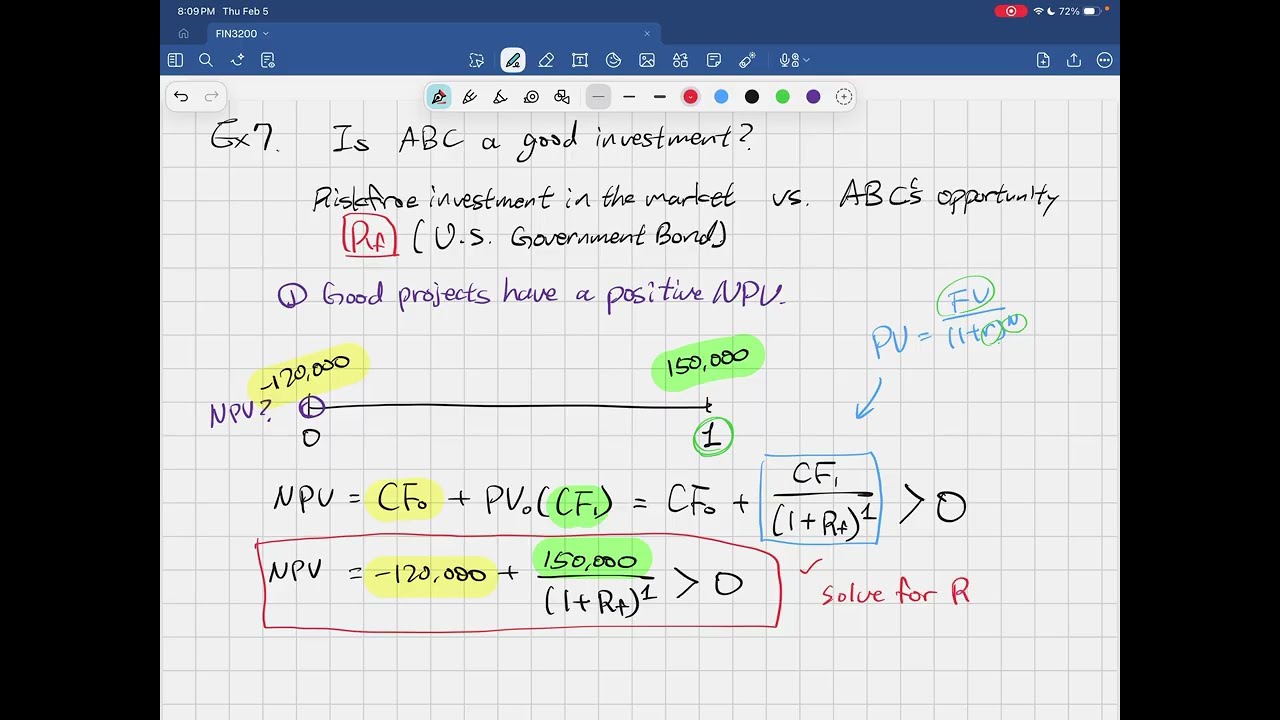 8:09 PM Thu Feb 5
72%
FIN3200
Ex7. Is ABC a good investment?
Riskfree investment in the market vs. ABC's opportunity
Rf (U.S. Government Bond)
① Good projects have a positive NPV.
PV = FV / (1+r)^N
-120,000 150,000
NPV?
0 1
NPV = CF₀ + PV₀(CF₁) = CF₀ + CF₁ / (1+Rf)^1 > 0
NPV = -120,000 + 150,000 / (1+Rf)^1 > 0
✓ solve for R